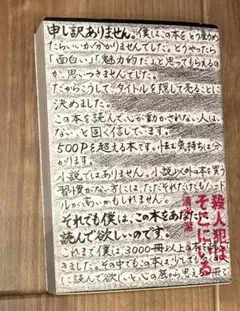 申し訳ありません。僕はこの本をどう勧め
たらいいか分かりませんでした。どうやったら
「面白い」「魅力的だ」と思ってもらえるの
か、思いつきませんでした。
だからこうして、タイトルを隠して売ることに
決めました。
この本を読んで心が動かされない人はい
ない、と固く信じています。
500Pを超える本です。怯む気持ちは分
かります。
小説ではありません。小説以外の本を買う
習慣がない方には、ただそれだけでもハード
ルが高いかもしれません。
それでも僕は、この本をあなたに
読んで欲しいのです。
これまで僕は3000冊以上の本を読んで
きました。その中でもこの本は
読んで欲しい、と心の底から思える一冊で
殺人犯は
そこにいる
清水潔